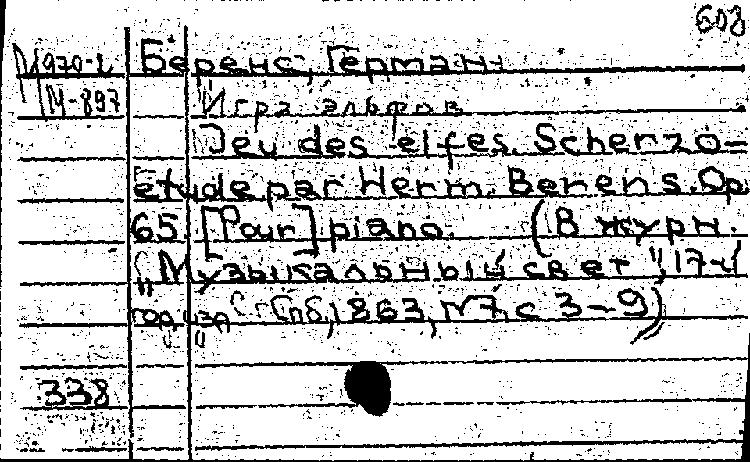 608
М970-2 Беренс, Герман.
М-897 Игра эльфов
Jeu des elfes. Scherzo-
étude par Herm. Berens. Op.
65. [Pour] piano. (В журн.
"Музыкальный свет", 17-й
год изд. Спб, 1863, №7, с 3-9)
338